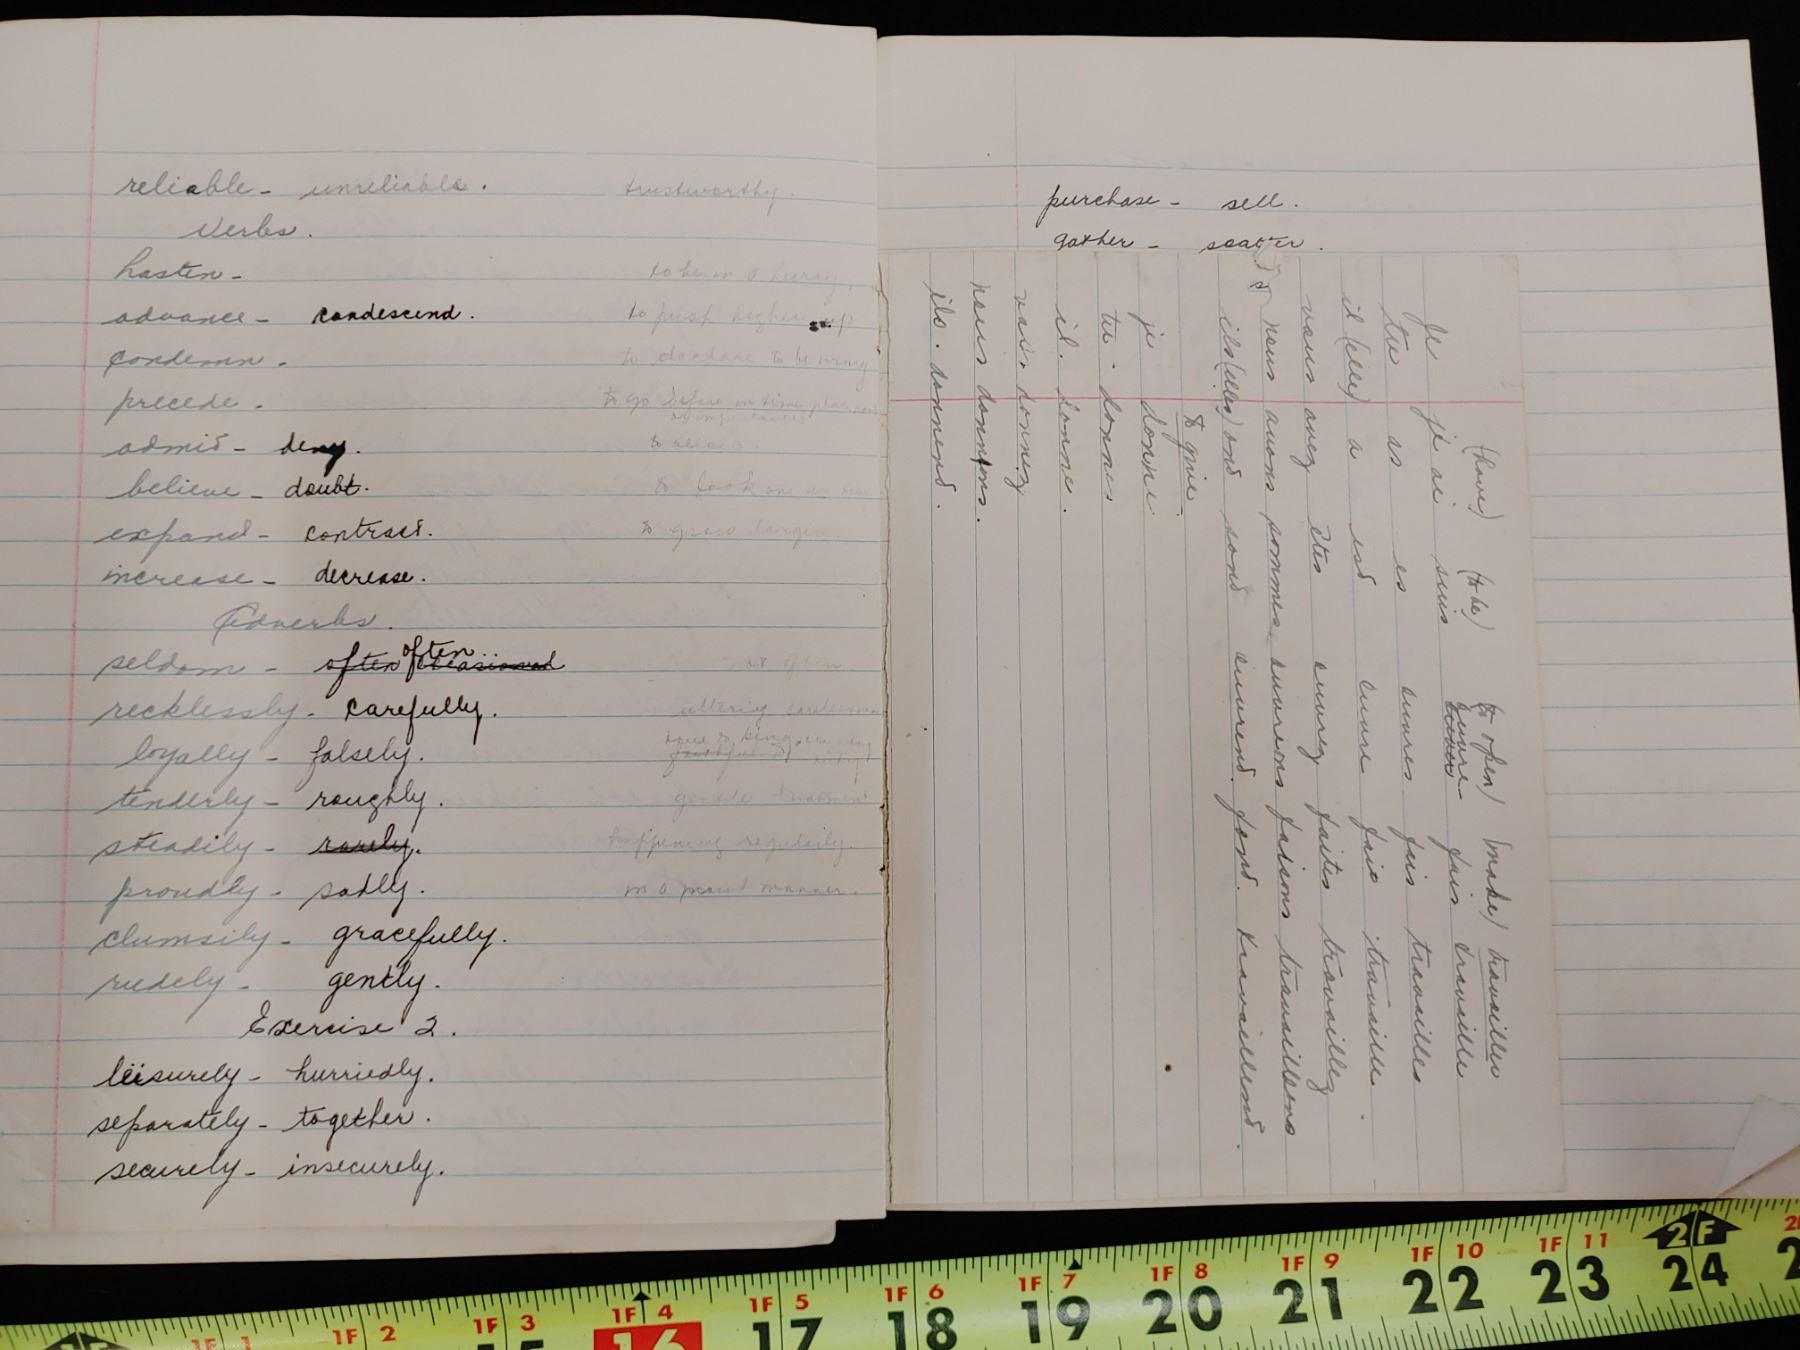 reliable - unreliable. trustworthy.
Verbs.
hasten - to be in a hurry.
advance - condescend. to push higher up
condemn - to declare to be wrong
precede - to go before in time, place,
admit - deny.
believe - doubt. to look on as true
expand - contract. to grow larger.
increase - decrease.
Adverbs.
seldom - often often occasional not often
recklessly - carefully. uttering carelessness
loyally - falsely.
tenderly - roughly. gentle treatment
steadily - rarely. happening regularly.
proudly - sadly. in a proud manner.
clumsily - gracefully.
rudely - gently.
Exercise 2.
leisurely - hurriedly.
separately - together.
securely - insecurely.
purchase - sell.
gather - scatter.
(have) (to be) (to open) (make) travailler
Je je ai suis euvre fais travaille
tu as es euvres fais travailles
il (elle) a est euvre fais travaille
vous avez êtes euvrez faites travaillez
nous avons sommes euvrons faisons travaillons
ils (elles) ont sont euvrent font. travaillent.
to give.
je donne
tu - donnes
il. donne.
vous. donnez
nous donnons.
ils. donnent.
1F 1 1F 2 1F 3 1F 4 1F 5 1F 6 1F 7 1F 8 1F 9 1F 10 1F 11 2F
15 16 17 18 19 20 21 22 23 24